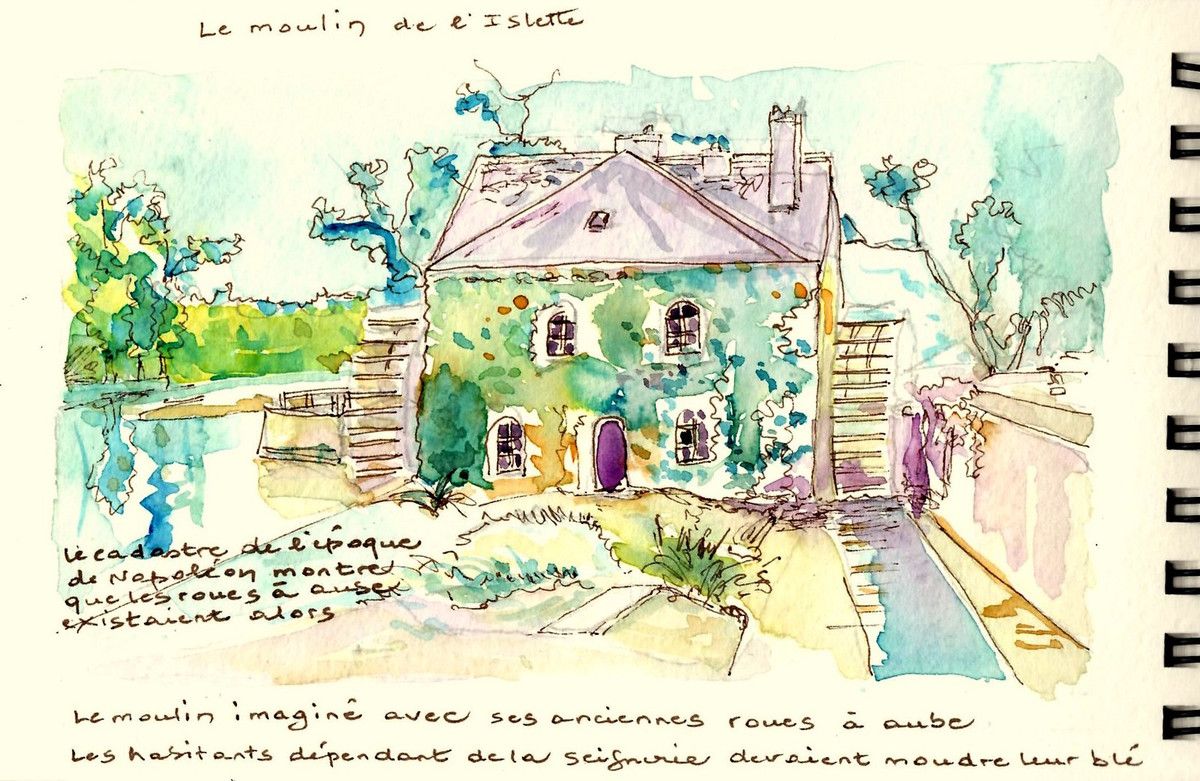 Le moulin de l'Islette
Le cadastre de l'époque
de Napoléon montre
que les roues à aube
existaient alors
Le moulin imaginé avec ses anciennes roues à aube
Les habitants dépendant de la seigneurie devaient moudre leur blé